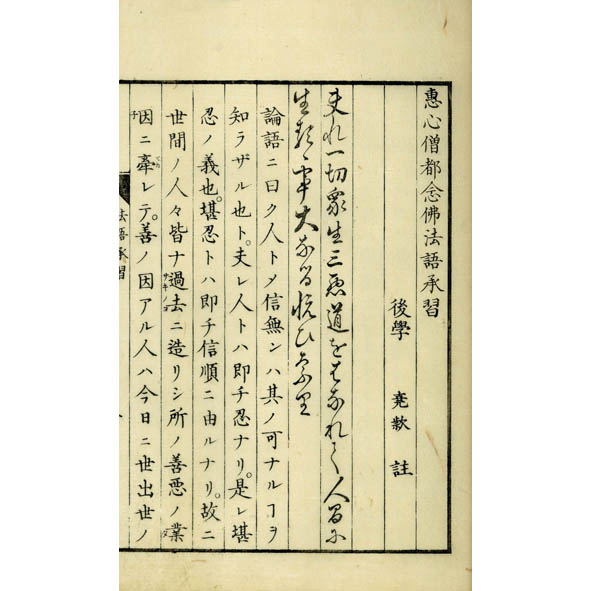 惠心僧都念佛法語承習
後學 堯欵 註
夫れ一切衆生三惡道をはなれて人間に
生るゝ事大なる悦ひなり
論語ニ曰ク人トメ信無ンハ其ノ可ナルヿヲ
知ラザル也ト。夫レ人トハ即チ忍ナリ。是レ堪
忍ノ義也。堪忍トハ即チ信順ニ由ルナリ。故ニ
世間ノ人々皆ナ過去ニ造リシ所ノ善悪ノ業
因ニ牽レテ。善ノ因アル人ハ今日ニ世出世ノ
法語承習